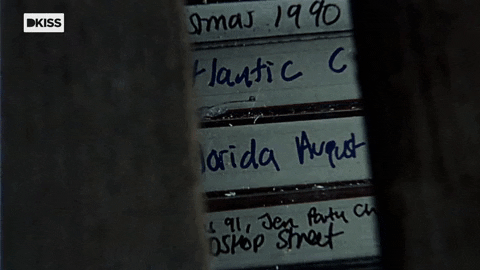 DKISS
stmas 1990
tlantic C
lorida August
s 91, Jen Party Ch
OSHOP Street